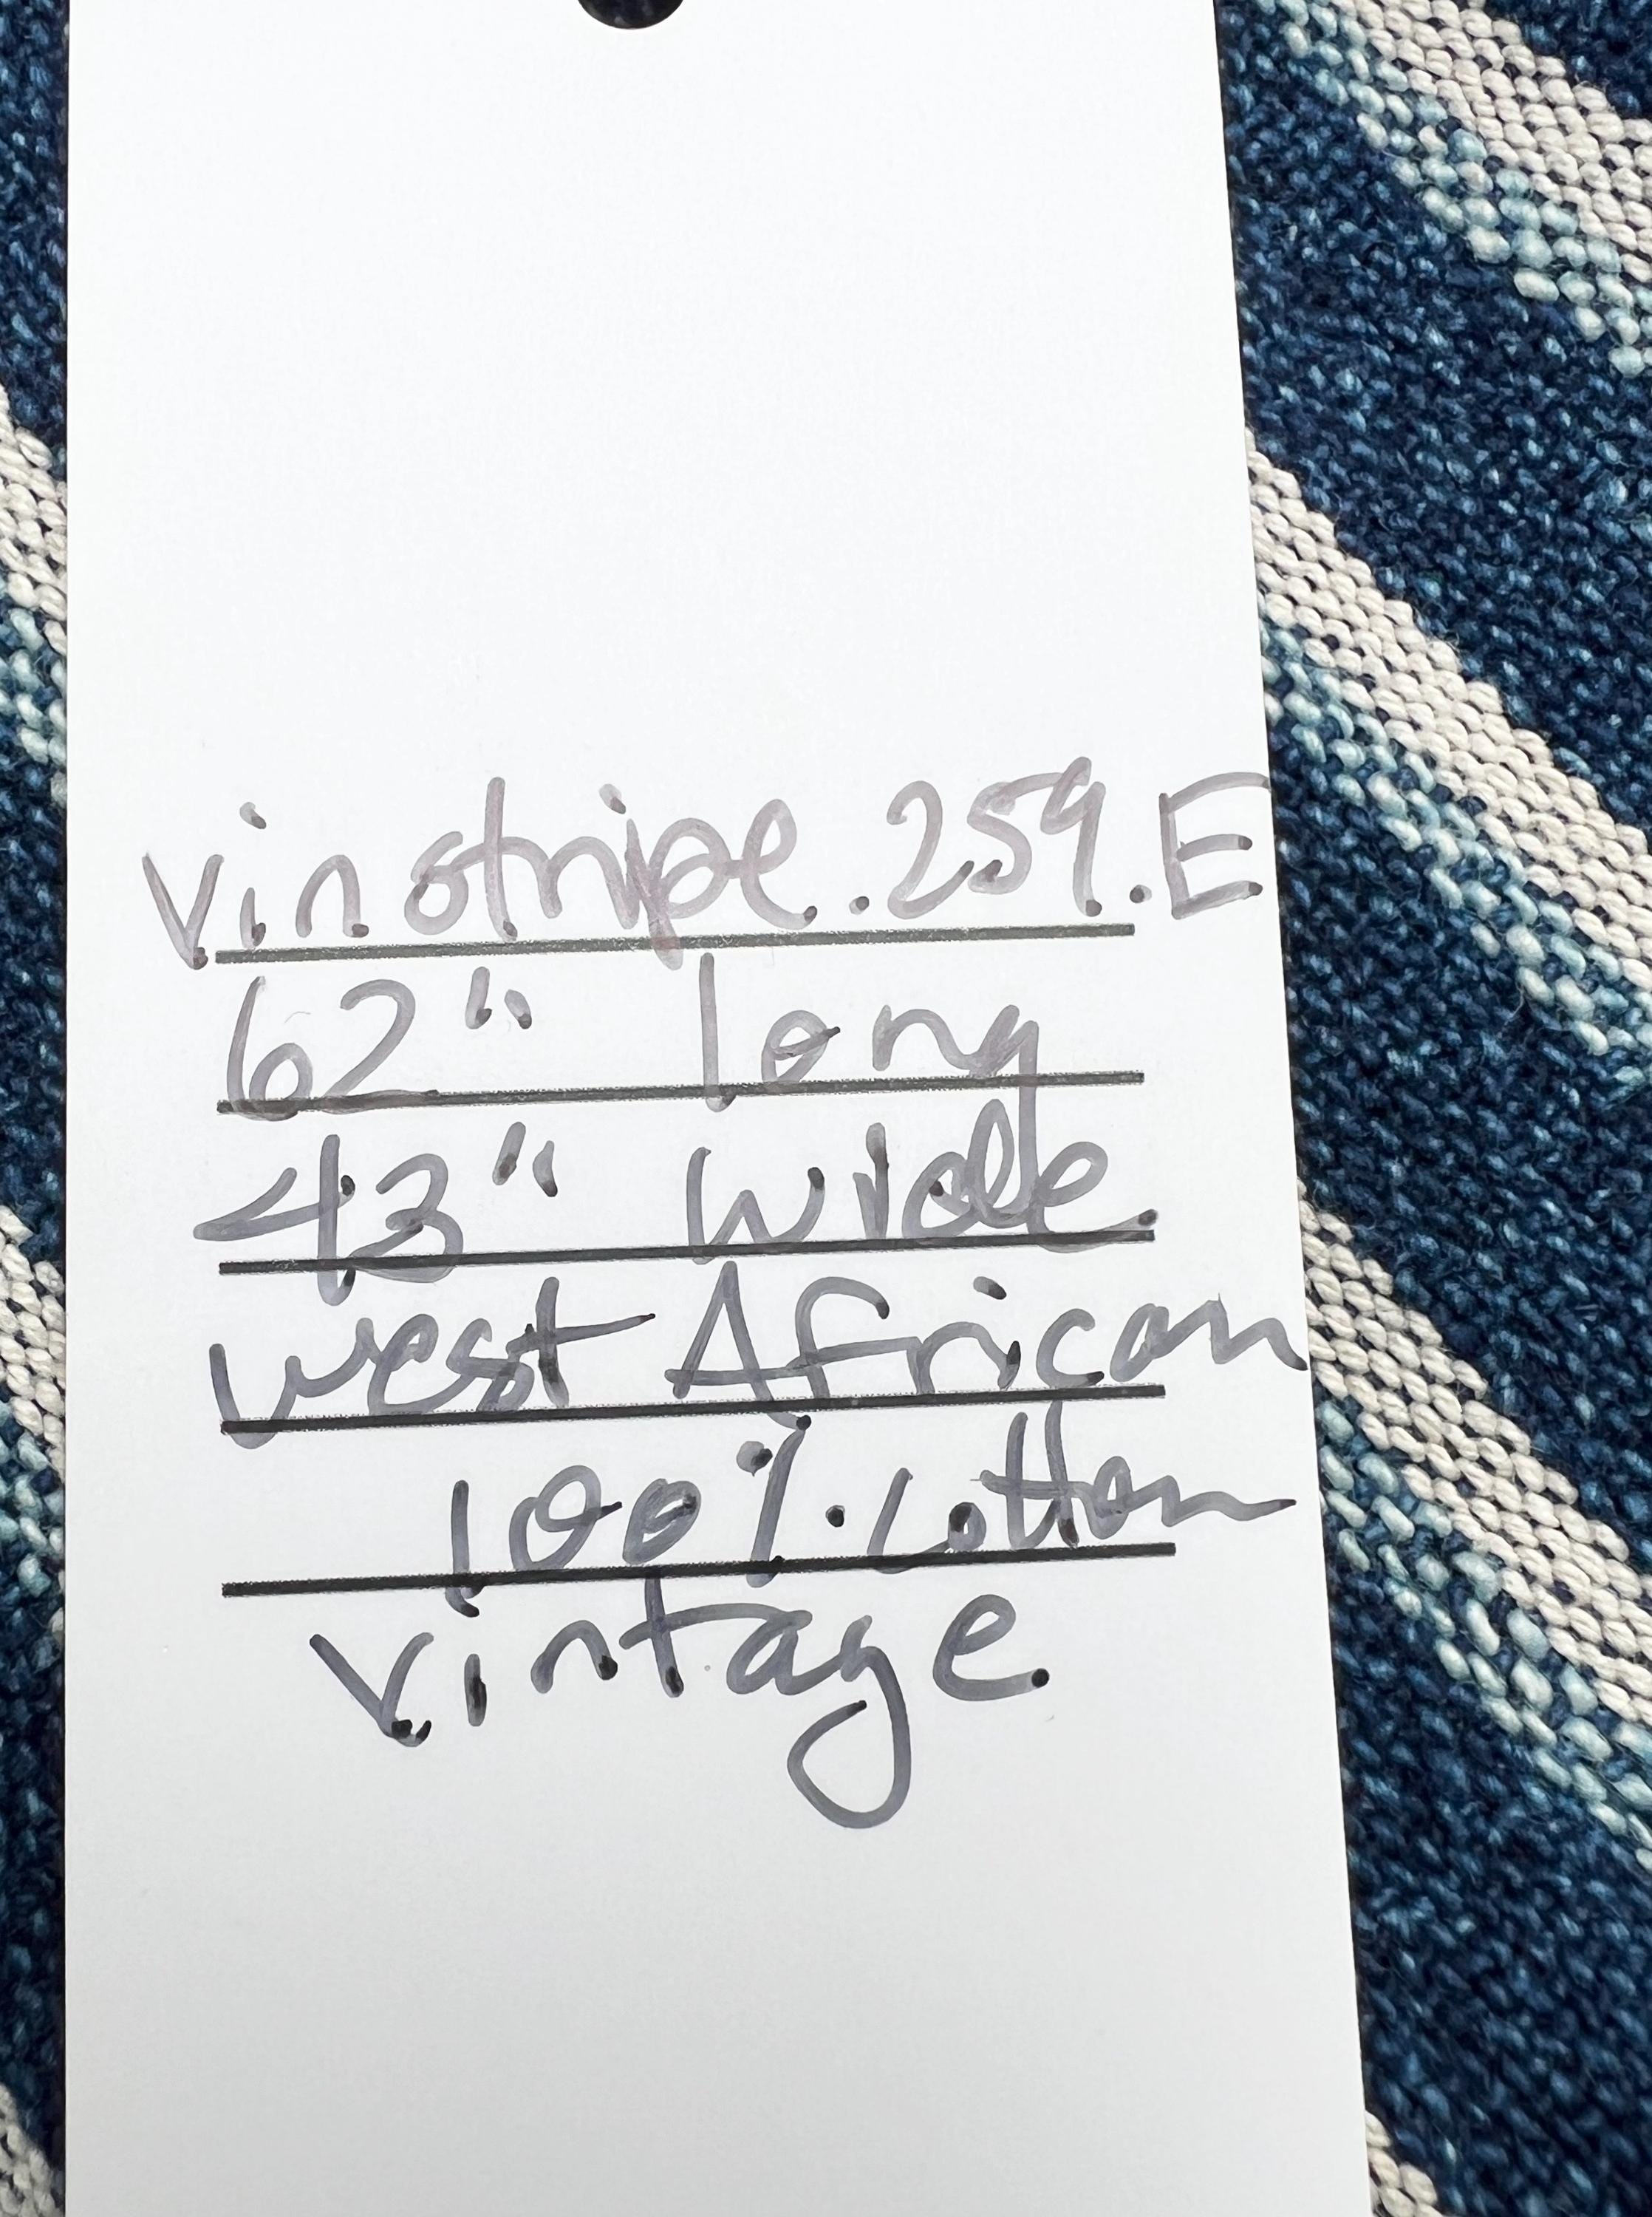 vinstripe.259.E
62" long
43" wide
west African
100% cotton
vintage